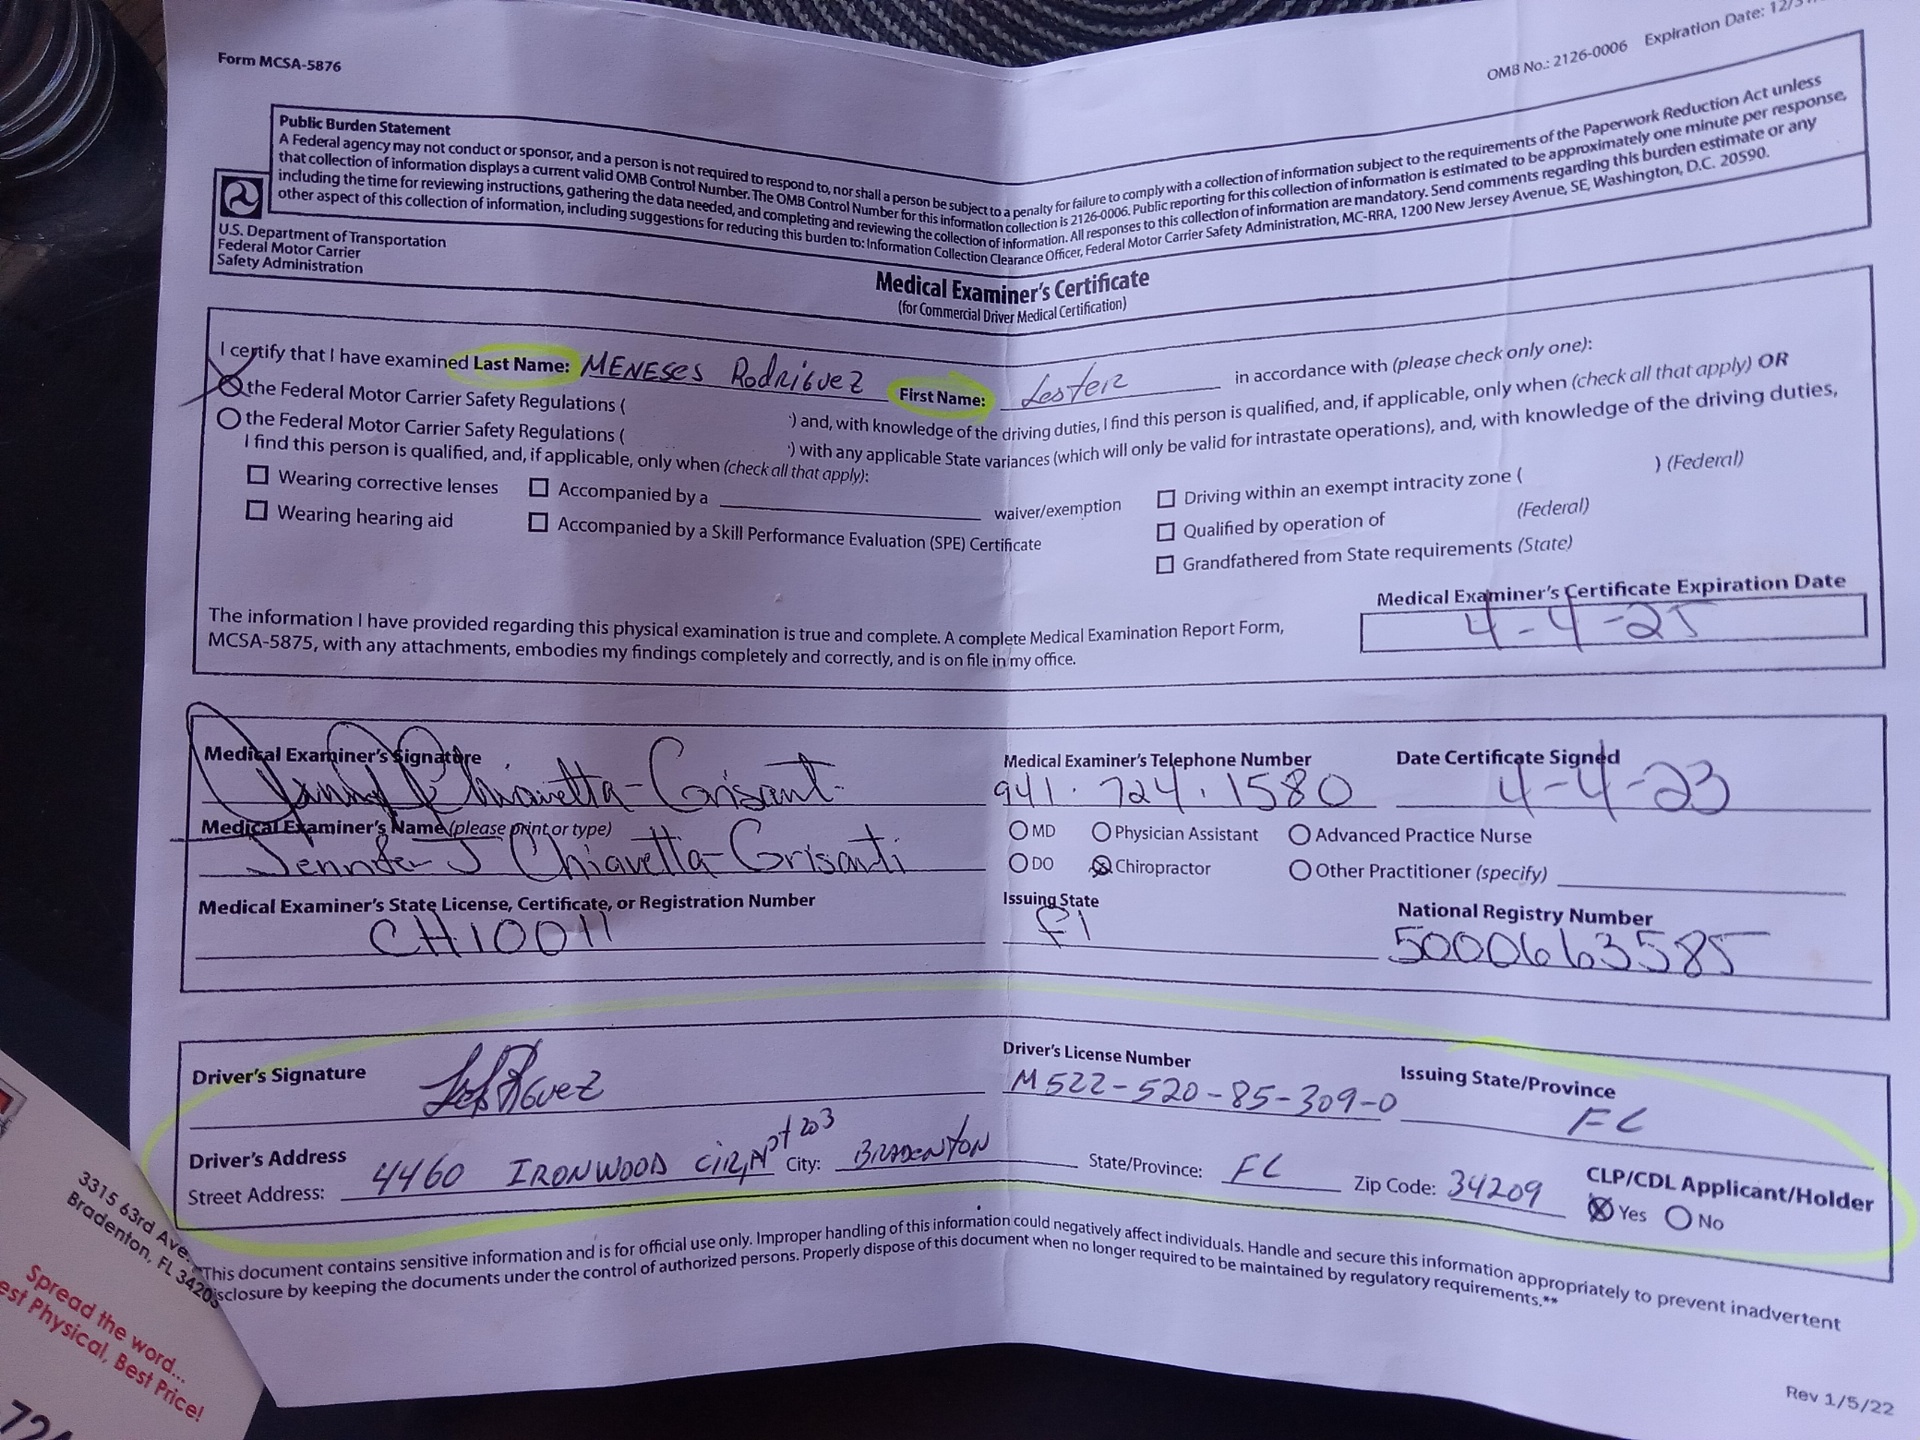 Form MCSA-5876
OMB No.: 2126-0006 Expiration Date: 12/
Public Burden Statement
A Federal agency may not conduct or sponsor, and a person is not required to respond to, nor shall a person be subject to a penalty for failure to comply with a collection of information subject to the requirements of the Paperwork Reduction Act unless
that collection of information displays a current valid OMB Control Number. The OMB Control Number for this information collection is 2126-0006. Public reporting for this collection of information is estimated to be approximately one minute per response,
including the time for reviewing instructions, gathering the data needed, and completing and reviewing the collection of information. All responses to this collection of information are mandatory. Send comments regarding this burden estimate or any
other aspect of this collection of information, including suggestions for reducing this burden to: Information Collection Clearance Officer, Federal Motor Carrier Safety Administration, MC-RRA, 1200 New Jersey Avenue, SE, Washington, D.C. 20590.
U.S. Department of Transportation
Federal Motor Carrier
Safety Administration
Medical Examiner's Certificate
(for Commercial Driver Medical Certification)
I certify that I have examined Last Name: MENESES RodRiGuez First Name: Lester in accordance with (please check only one):
the Federal Motor Carrier Safety Regulations ( ) and, with knowledge of the driving duties, I find this person is qualified, and, if applicable, only when (check all that apply) OR
the Federal Motor Carrier Safety Regulations ( ) with any applicable State variances (which will only be valid for intrastate operations), and, with knowledge of the driving duties,
I find this person is qualified, and, if applicable, only when (check all that apply):
Wearing corrective lenses Accompanied by a waiver/exemption Driving within an exempt intracity zone ( ) (Federal)
Wearing hearing aid Accompanied by a Skill Performance Evaluation (SPE) Certificate Qualified by operation of (Federal)
Grandfathered from State requirements (State)
The information I have provided regarding this physical examination is true and complete. A complete Medical Examination Report Form,
MCSA-5875, with any attachments, embodies my findings completely and correctly, and is on file in my office.
Medical Examiner's Certificate Expiration Date
4-4-25
Medical Examiner's Signature Medical Examiner's Telephone Number Date Certificate Signed
Chiavetta-Grisanti 941.724.1580 4-4-23
Medical Examiner's Name (please print or type) MD Physician Assistant Advanced Practice Nurse
Jennifer J Chiavetta-Grisanti DO Chiropractor Other Practitioner (specify)
Medical Examiner's State License, Certificate, or Registration Number Issuing State National Registry Number
CH10011 Fl 5000663585
Driver's Signature Driver's License Number Issuing State/Province
M522-520-85-309-0 FL
Driver's Address
Street Address: 4460 IRONWOOD CIR, Apt 203 City: BRADENTON State/Province: FL Zip Code: 34209 CLP/CDL Applicant/Holder
Yes No
This document contains sensitive information and is for official use only. Improper handling of this information could negatively affect individuals. Handle and secure this information appropriately to prevent inadvertent
disclosure by keeping the documents under the control of authorized persons. Properly dispose of this document when no longer required to be maintained by regulatory requirements.**
Rev 1/5/22
3315 63rd Ave.
Bradenton, FL 34203
Spread the word...
est Physical, Best Price!